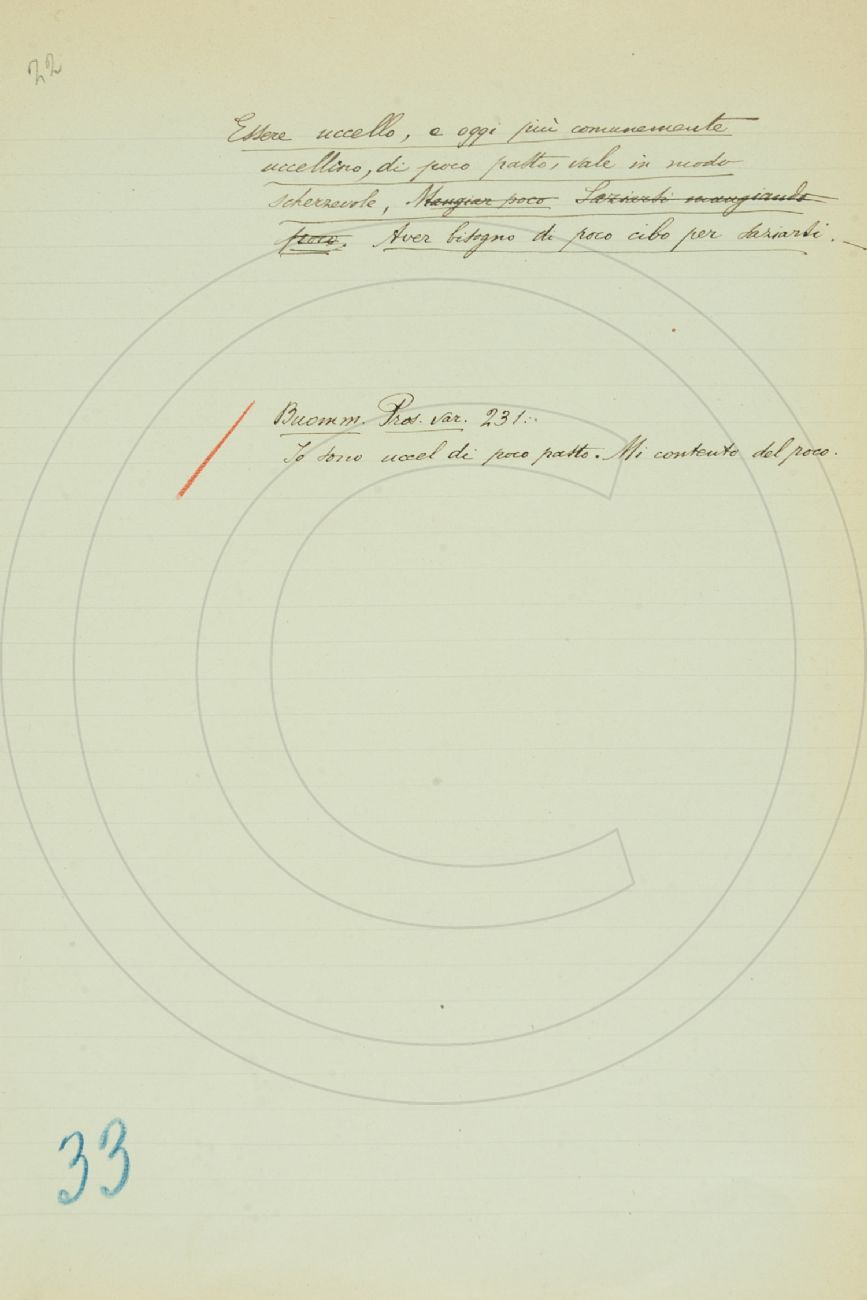 22
Essere uccello, e oggi più comunemente
uccellino, di poco pasto, vale in modo
scherzevole, Mangiar poco Saziarsi mangiando
poco. Aver bisogno di poco cibo per saziarsi. —
Buomm. Pros. var. 231:
Io sono uccel di poco pasto. Mi contento del poco.
33